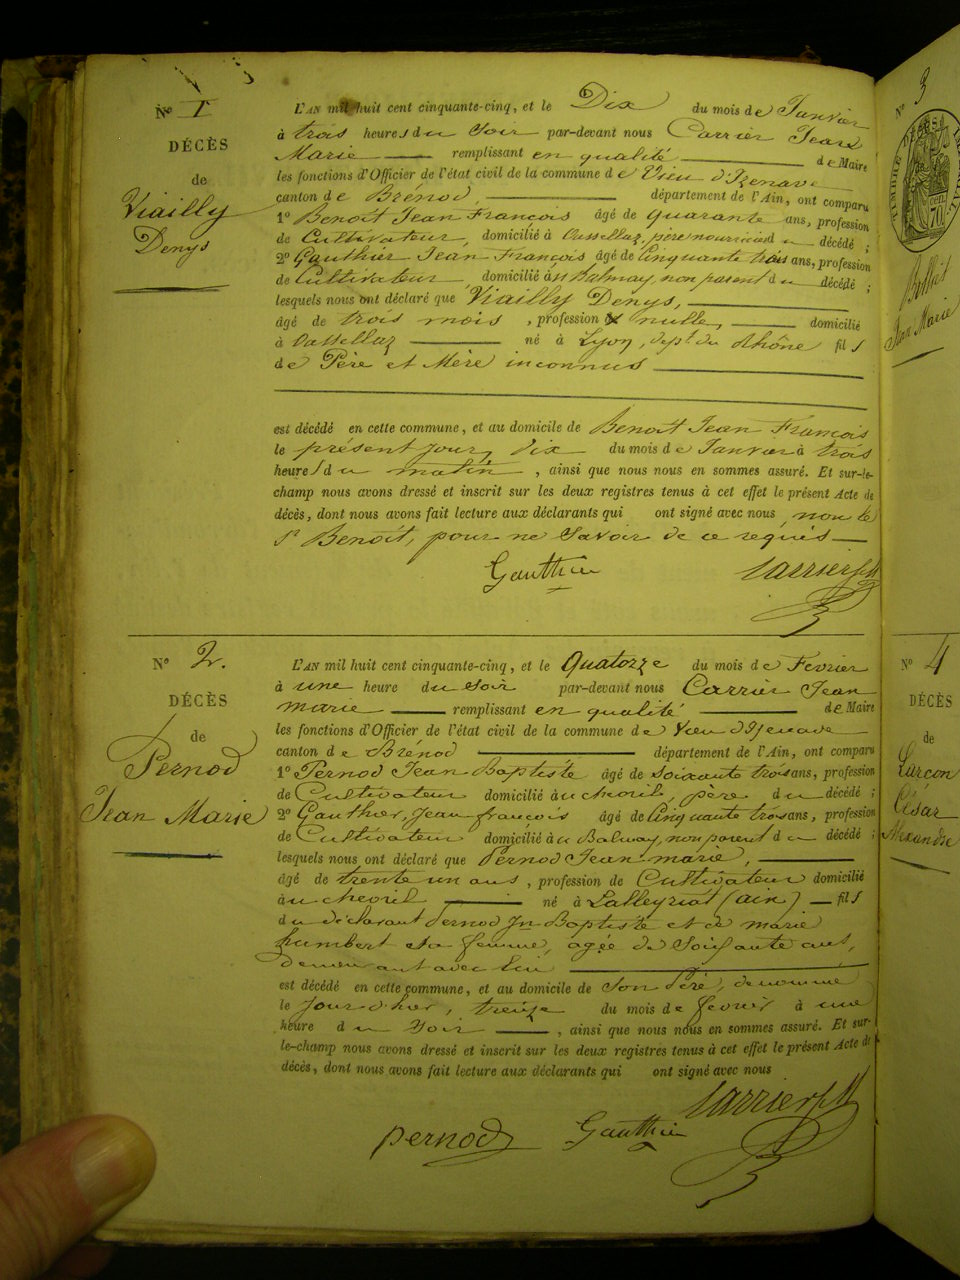 N° 1
DÉCÈS
de
Viailly
Denys
L'AN mil huit cent cinquante-cinq, et le Dix du mois de Janvier
à trois heures du Soir par-devant nous Carrier Jean
Marie remplissant en qualité de Maire
les fonctions d'Officier de l'état civil de la commune de Vieu d'Izenave
canton de Brénod, département de l'Ain, ont comparu
1° Benoit Jean François âgé de quarante ans, profession
de Cultivateur, domicilié à Oussellaz, père nourricier du décédé ;
2° Gauthier Jean François âgé de Cinquante trois ans, profession
de Cultivateur domicilié à Balmay, non parent du décédé ;
lesquels nous ont déclaré que Viailly Denys,
âgé de trois mois , profession nulle, domicilié
à Oussellaz né à Lyon, dépt. du Rhône fils
de Père et Mère inconnus
est décédé en cette commune, et au domicile de Benoit Jean François
le présent jour, dix du mois de Janvier à trois
heures du matin , ainsi que nous nous en sommes assuré. Et sur-le-
champ nous avons dressé et inscrit sur les deux registres tenus à cet effet le présent Acte de
décès, dont nous avons fait lecture aux déclarants qui ont signé avec nous, non le
Sr Benoit, pour ne Savoir de ce requis
Gauthier Carrier J M
N° 2.
DÉCÈS
de
Pernod
Jean Marie
L'AN mil huit cent cinquante-cinq, et le Quatorze du mois de Fevrier
à une heure du soir par-devant nous Carrier Jean
marie remplissant en qualité de Maire
les fonctions d'Officier de l'état civil de la commune de Vieu d'Izenave
canton de Brenod département de l'Ain, ont comparu
1° Pernod Jean Baptiste âgé de soixante trois ans, profession
de Cultivateur domicilié au chevril, père du décédé ;
2° Gauthier, Jean françois âgé de Cinquante trois ans, profession
de Cultivateur domicilié au Balmay, non parent du décédé ;
lesquels nous ont déclaré que Pernod Jean marie,
âgé de trente un ans , profession de Cultivateur domicilié
au chevril né à Lalleyriat (ain) fils
du déclarant Pernod Jn Baptiste et de marie
humbert sa femme, agée de Soixante ans,
demeurant avec lui
est décédé en cette commune, et au domicile de Son Père, denommé
le Jour d'hier, treize du mois de fevrier à une
heure du Soir , ainsi que nous nous en sommes assuré. Et sur-
le-champ nous avons dressé et inscrit sur les deux registres tenus à cet effet le présent Acte de
décès, dont nous avons fait lecture aux déclarants qui ont signé avec nous
pernod Gauthier Carrier J M
N° 3
Jean Marie
N° 4
DÉCÈS
de
Larçon
César
Alexandre